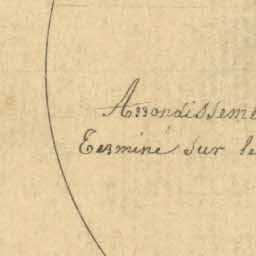 Arrondisseme
Terminé sur le